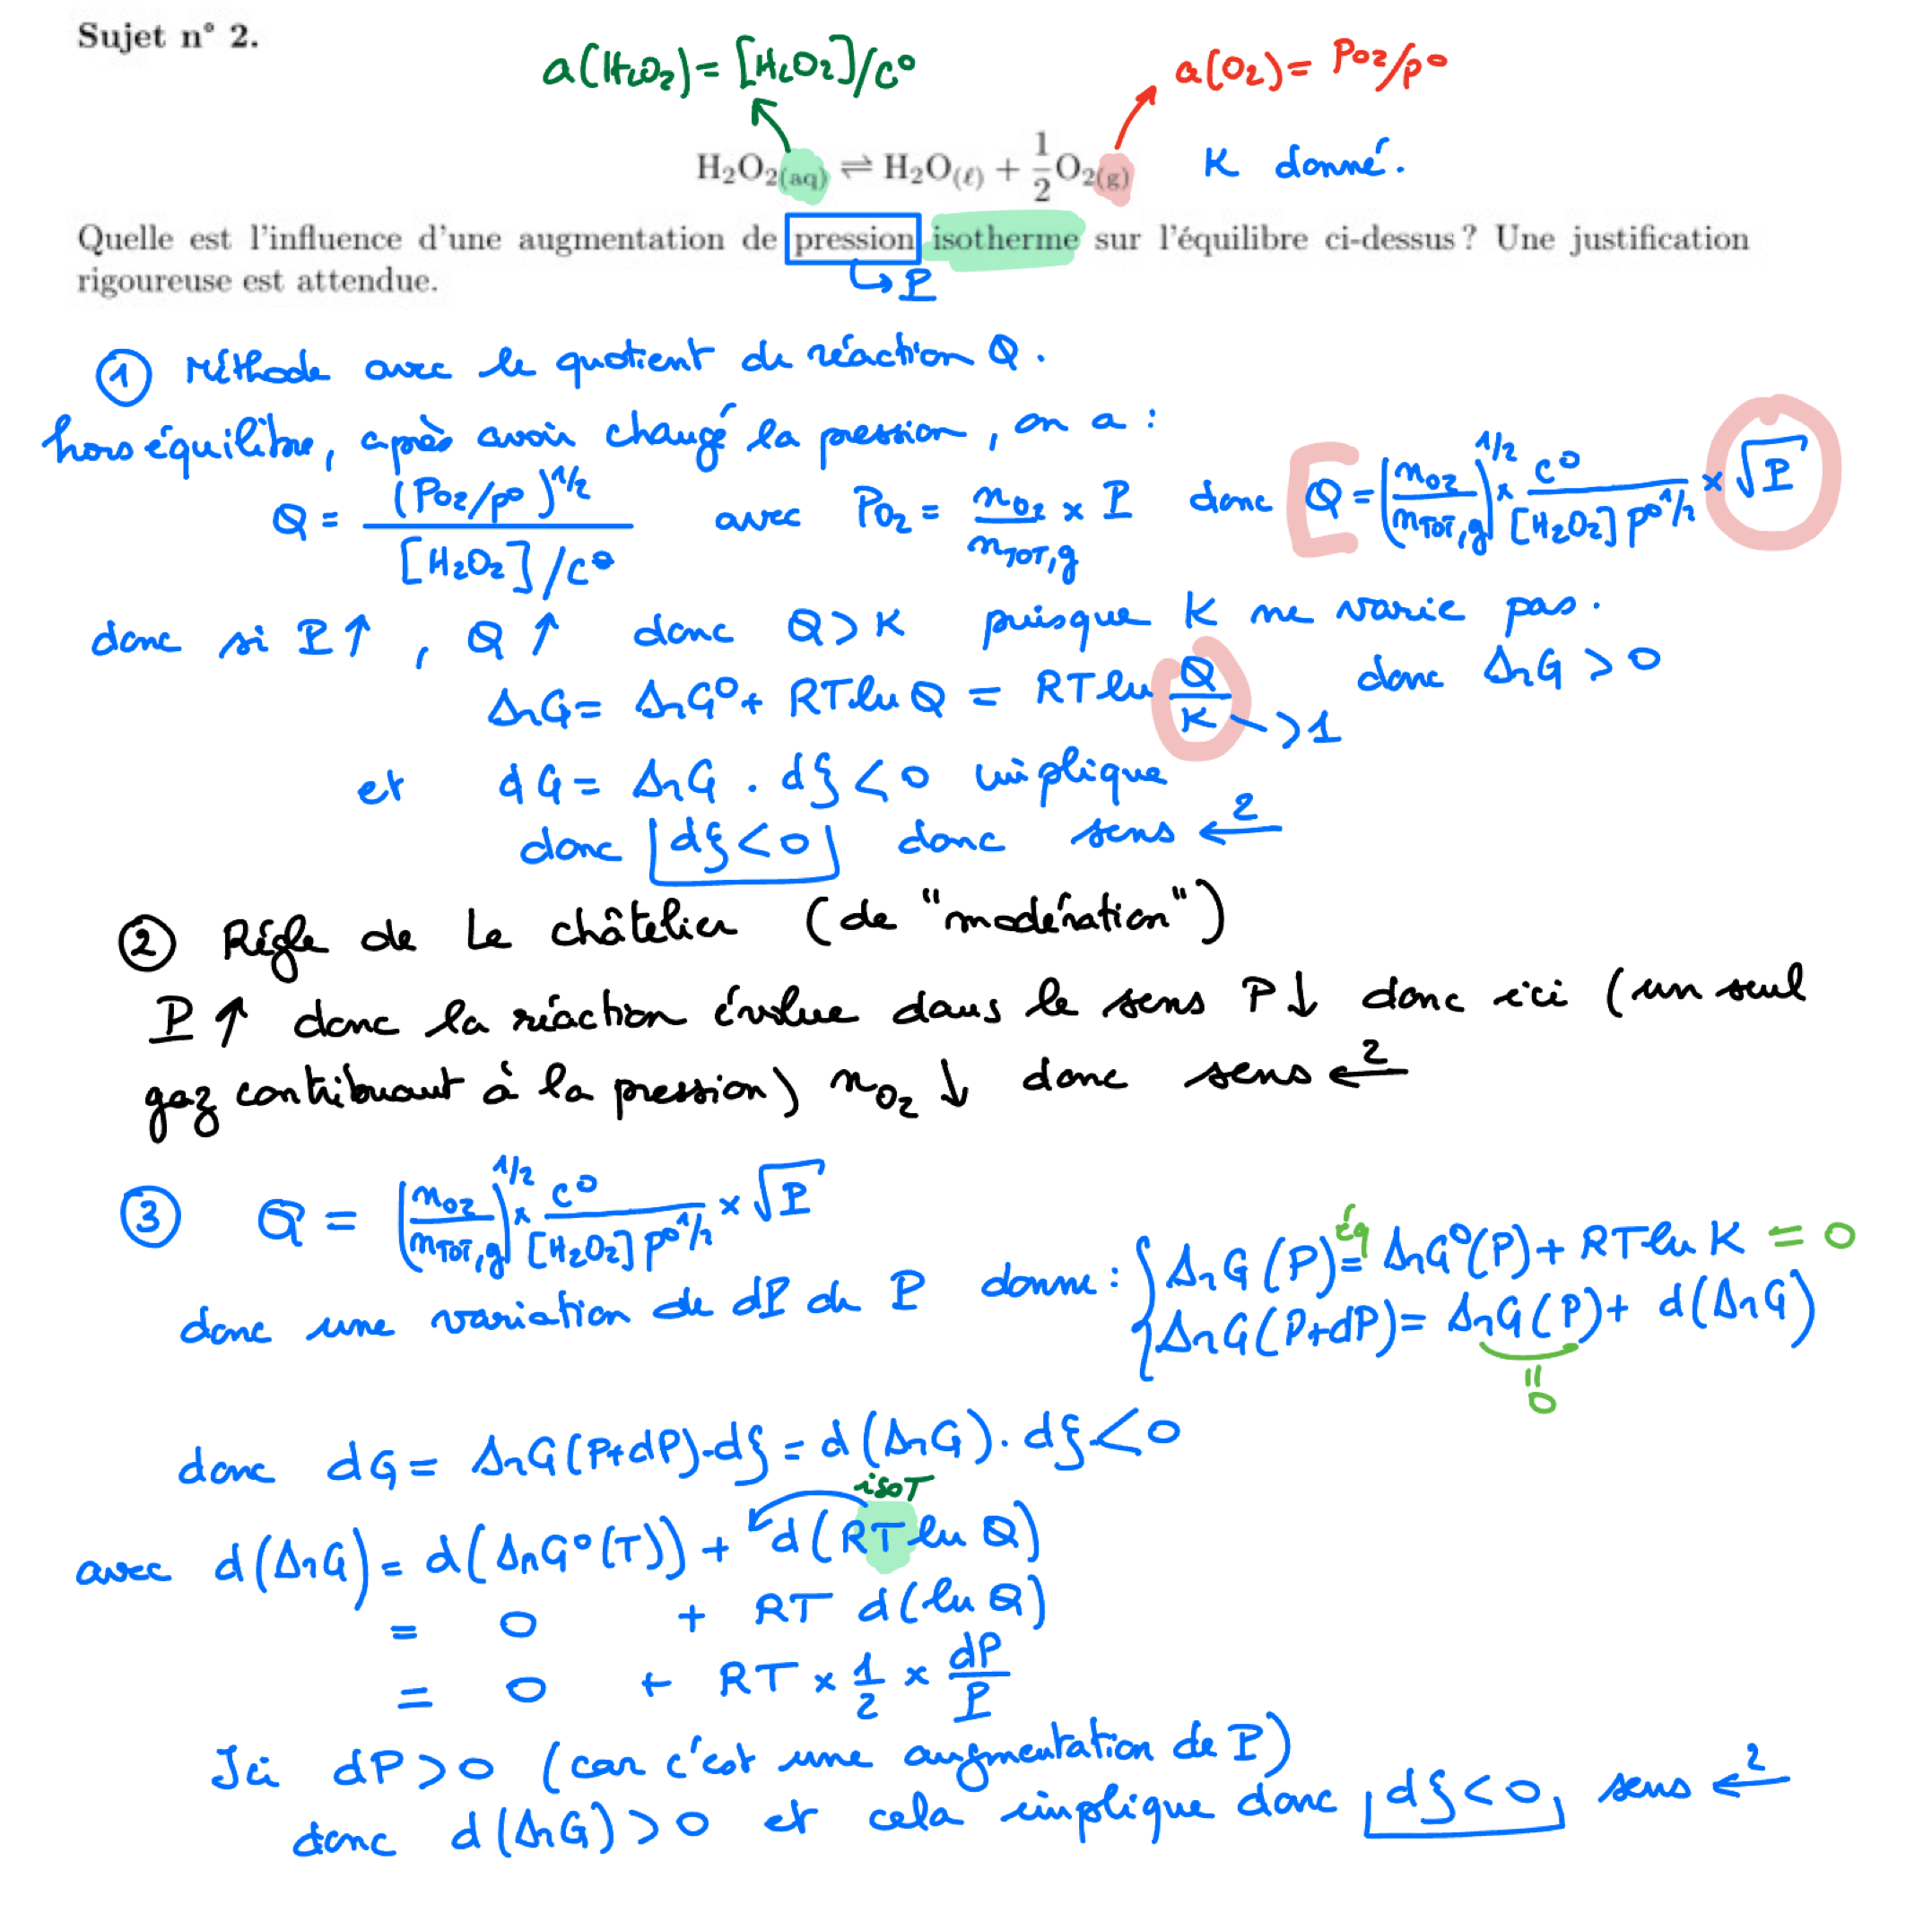 Sujet n° 2.
a(H₂O₂) = [H₂O₂]/c°
a(O₂) = Po₂/p°
H₂O₂(aq) ⇌ H₂O(ℓ) + 1/2 O₂(g)
K donné.
Quelle est l'influence d'une augmentation de pression isotherme sur l'équilibre ci-dessus ? Une justification
rigoureuse est attendue.
↳ P
① Méthode avec le quotient de réaction Q.
hors équilibre, après avoir changé la pression, on a :
Q = (Po₂/p°)^1/2 / [H₂O₂]/c° avec Po₂ = no₂/nTOT,g × P donc Q = (no₂/nTOT,g)^1/2 × c°/[H₂O₂] p°^1/2 × √P
donc si P ↑, Q ↑ donc Q > K puisque K ne varie pas.
ΔrG = ΔrG° + RT ln Q = RT ln Q/K → >1 donc ΔrG > 0
et dG = ΔrG . dξ < 0 implique
donc dξ < 0 donc sens ←2
② Règle de Le châtelier (de "modération")
P ↑ donc la réaction évolue dans le sens P ↓ donc ici (un seul
gaz contribuant à la pression) no₂ ↓ donc sens ←2
③ Q = (no₂/nTOT,g)^1/2 × c°/[H₂O₂] p°^1/2 × √P
donc une variation de dP de P donne : { ΔrG(P) =éq ΔrG°(P) + RT ln K = 0
ΔrG(P+dP) = ΔrG(P) + d(ΔrG)
=0
donc dG = ΔrG(P+dP).dξ = d(ΔrG). dξ < 0
isoT
avec d(ΔrG) = d(ΔrG°(T)) + d(RT ln Q)
= 0 + RT d(ln Q)
= 0 + RT × 1/2 × dP/P
Ici dP > 0 (car c'est une augmentation de P)
donc d(ΔrG) > 0 et cela implique donc dξ < 0, sens ←2